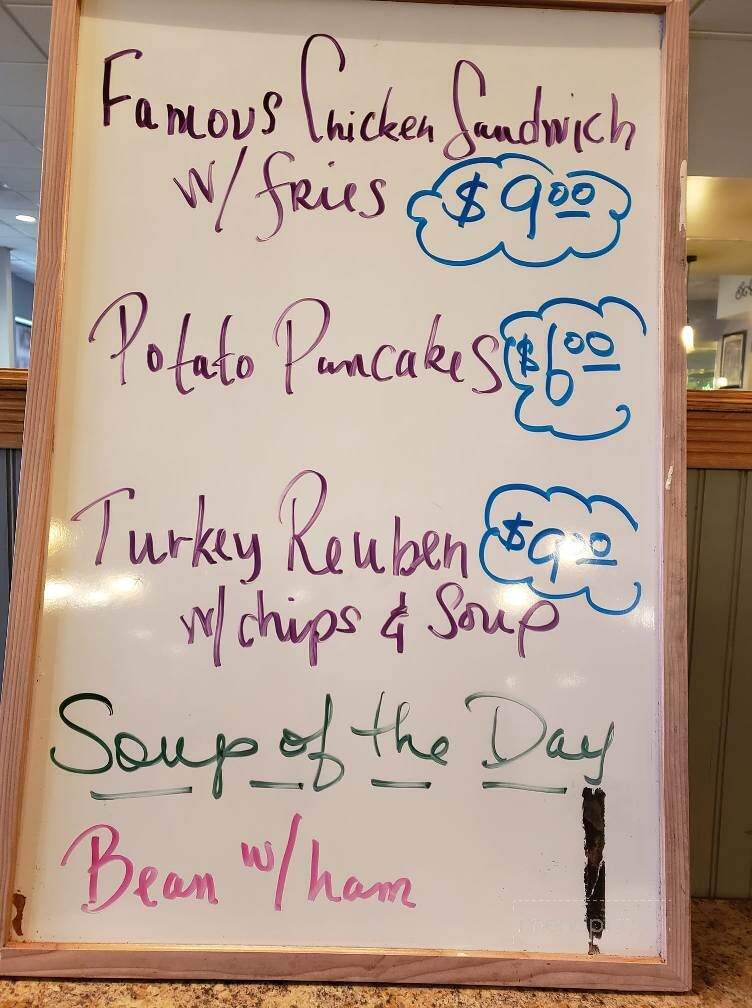 Famous Chicken Sandwich
w/ fries $9.00
Potato Pancakes $6.00
Turkey Reuben $9.00
w/ chips & Soup
Soup of the Day
Bean w/ ham